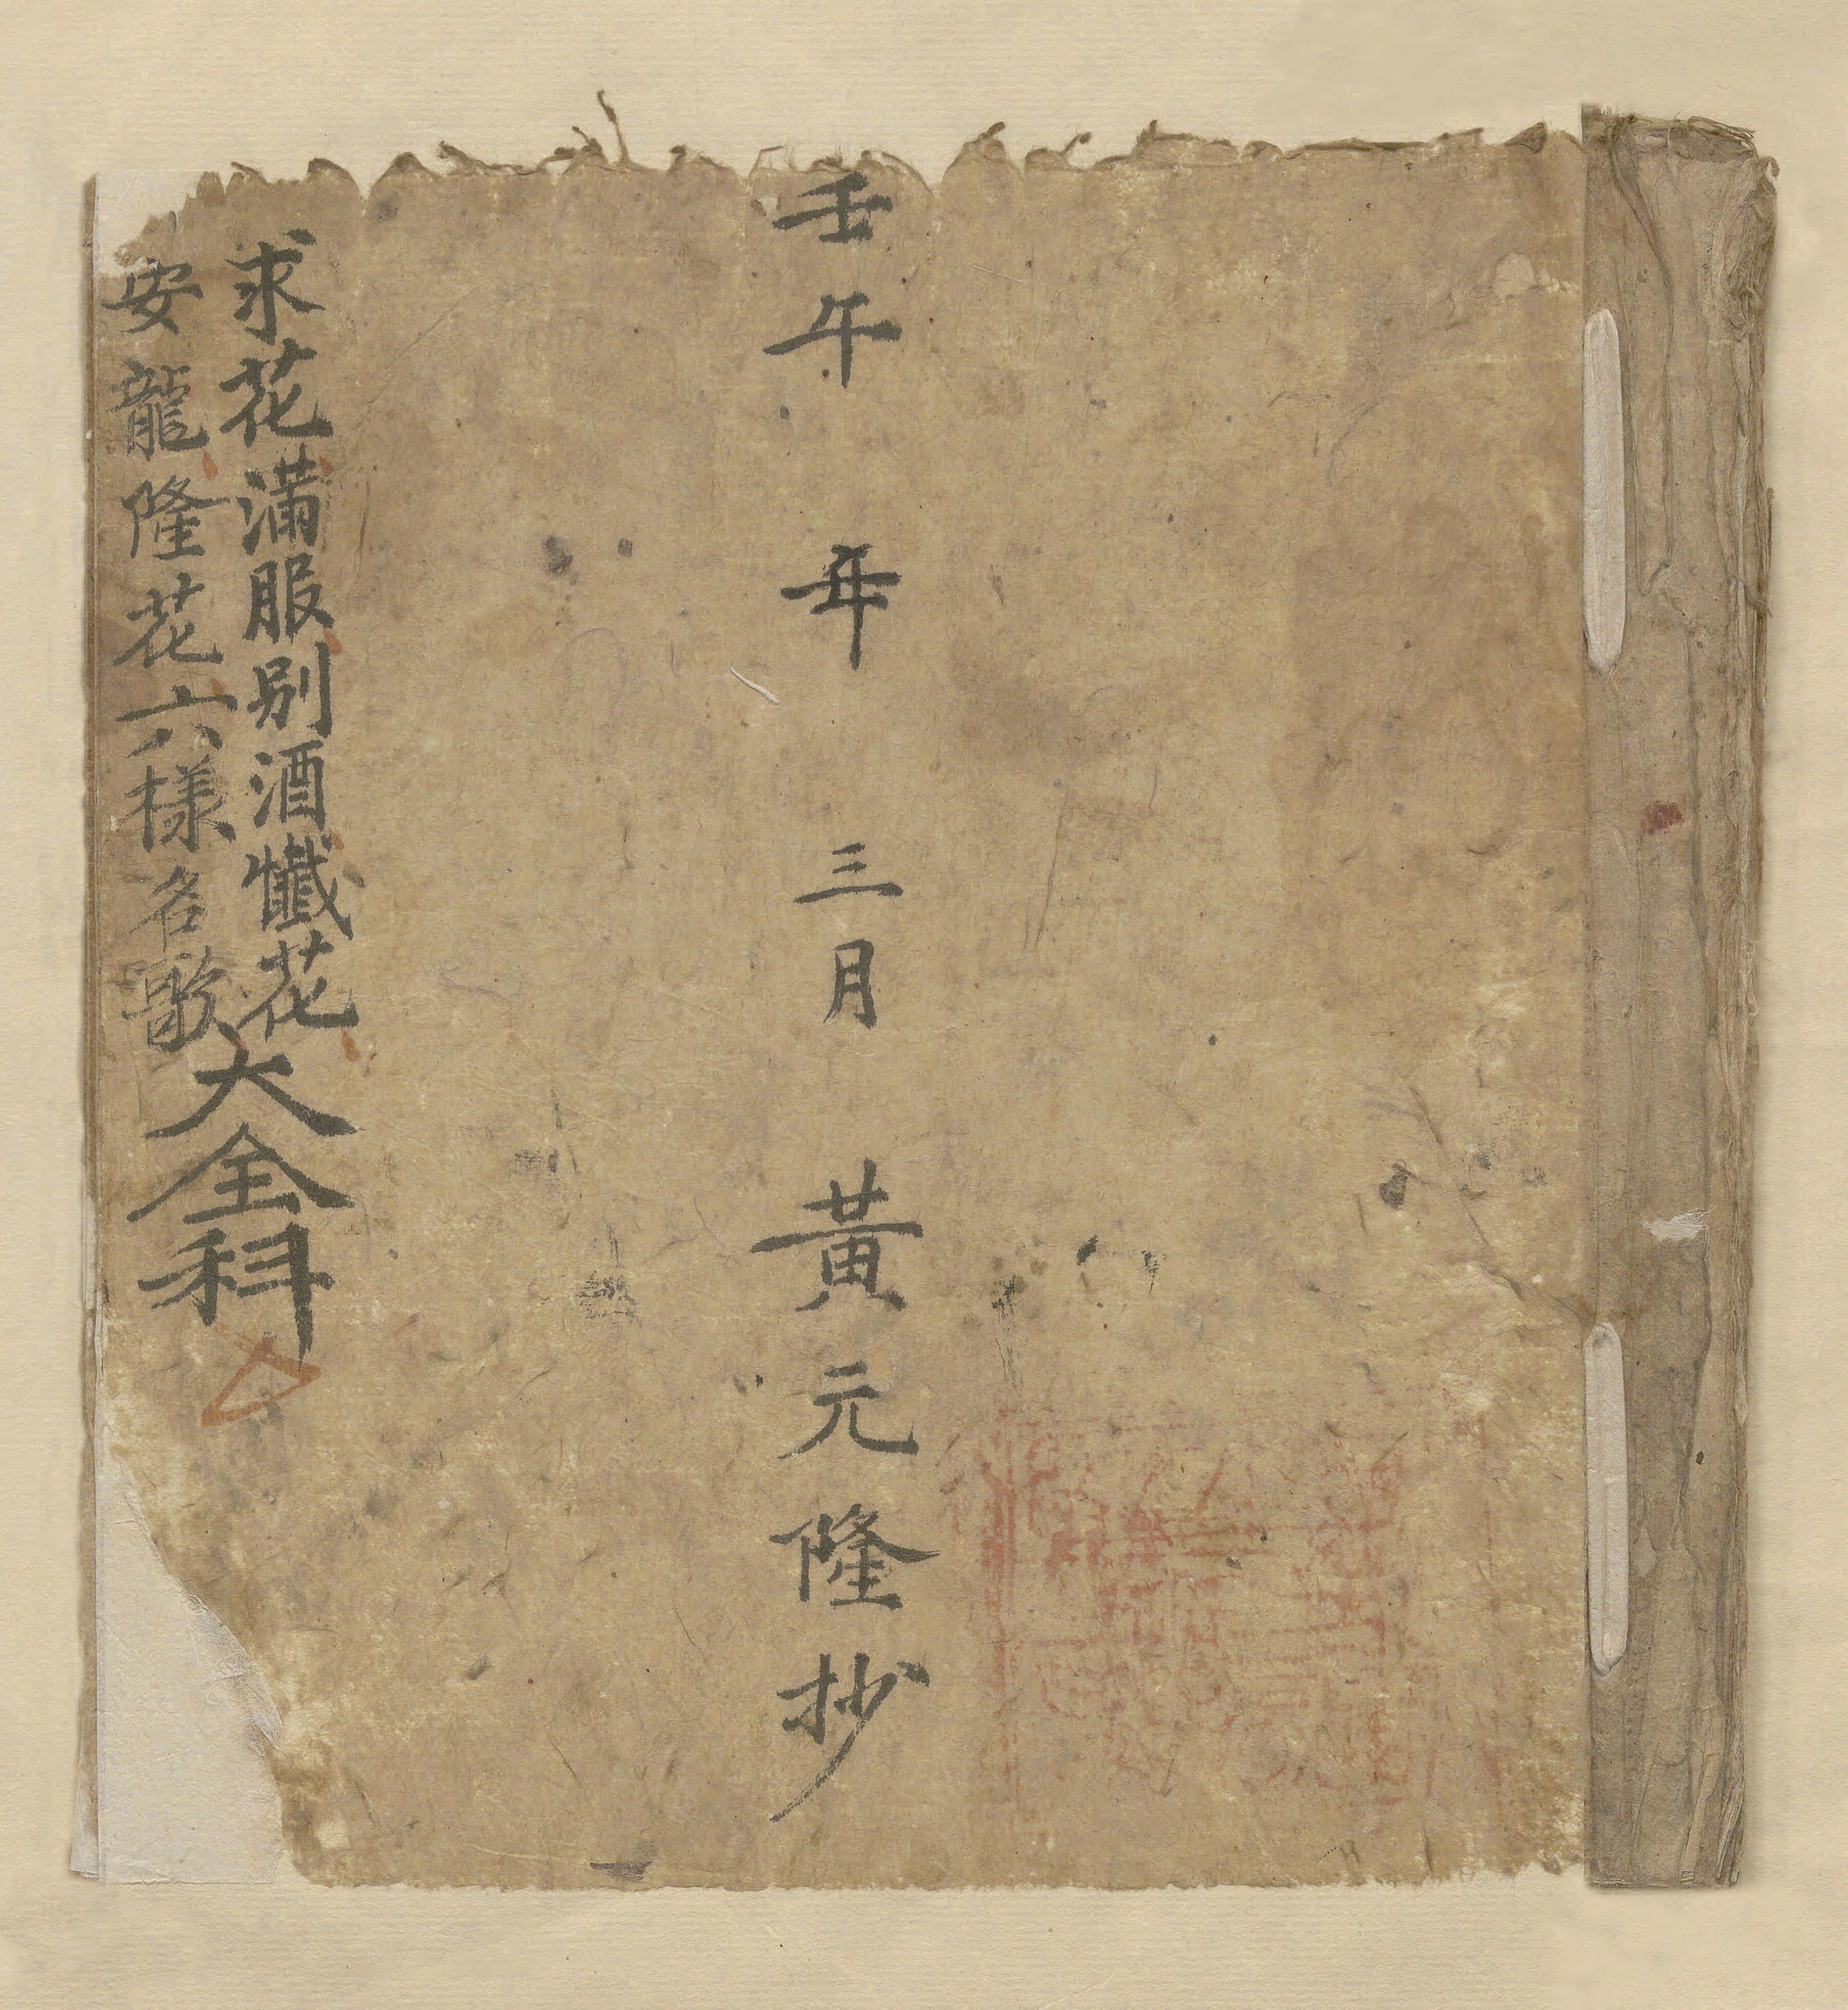 壬午年三月黃元隆抄
求花滿服别酒懺花
安龍隆花六樣各歌
大全科